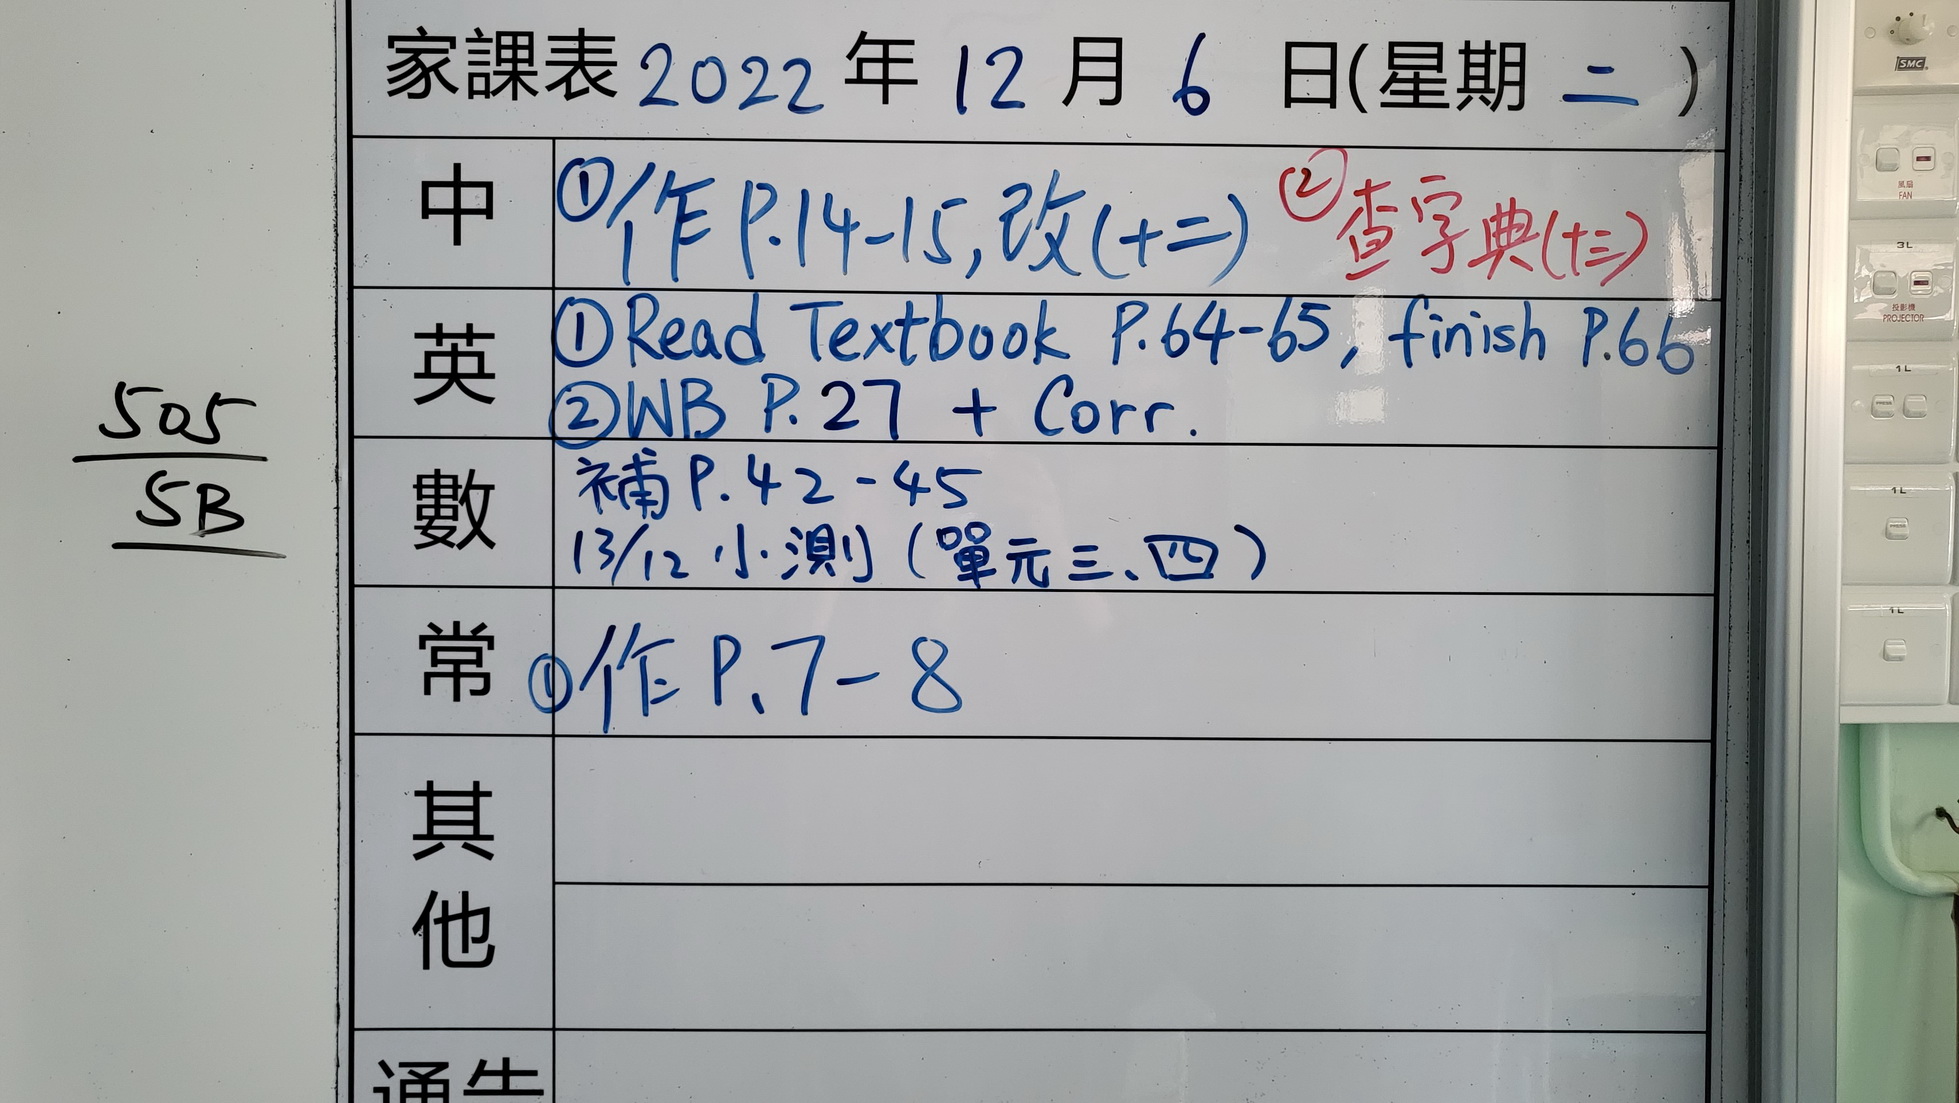 家課表 2022 年 12 月 6 日(星期 二 )
中 ①作 P.14-15, 改(十二) ②查字典(十三)
英 ①Read Textbook P.64-65, finish P.66
②WB P.27 + Corr.
數 補 P.42-45
13/12 小測 (單元三、四)
常 ①作 P.7-8
其他
通告
505
5B
SMC
風扇
FAN
3L
投影機
PROJECTOR
1L
1L
1L